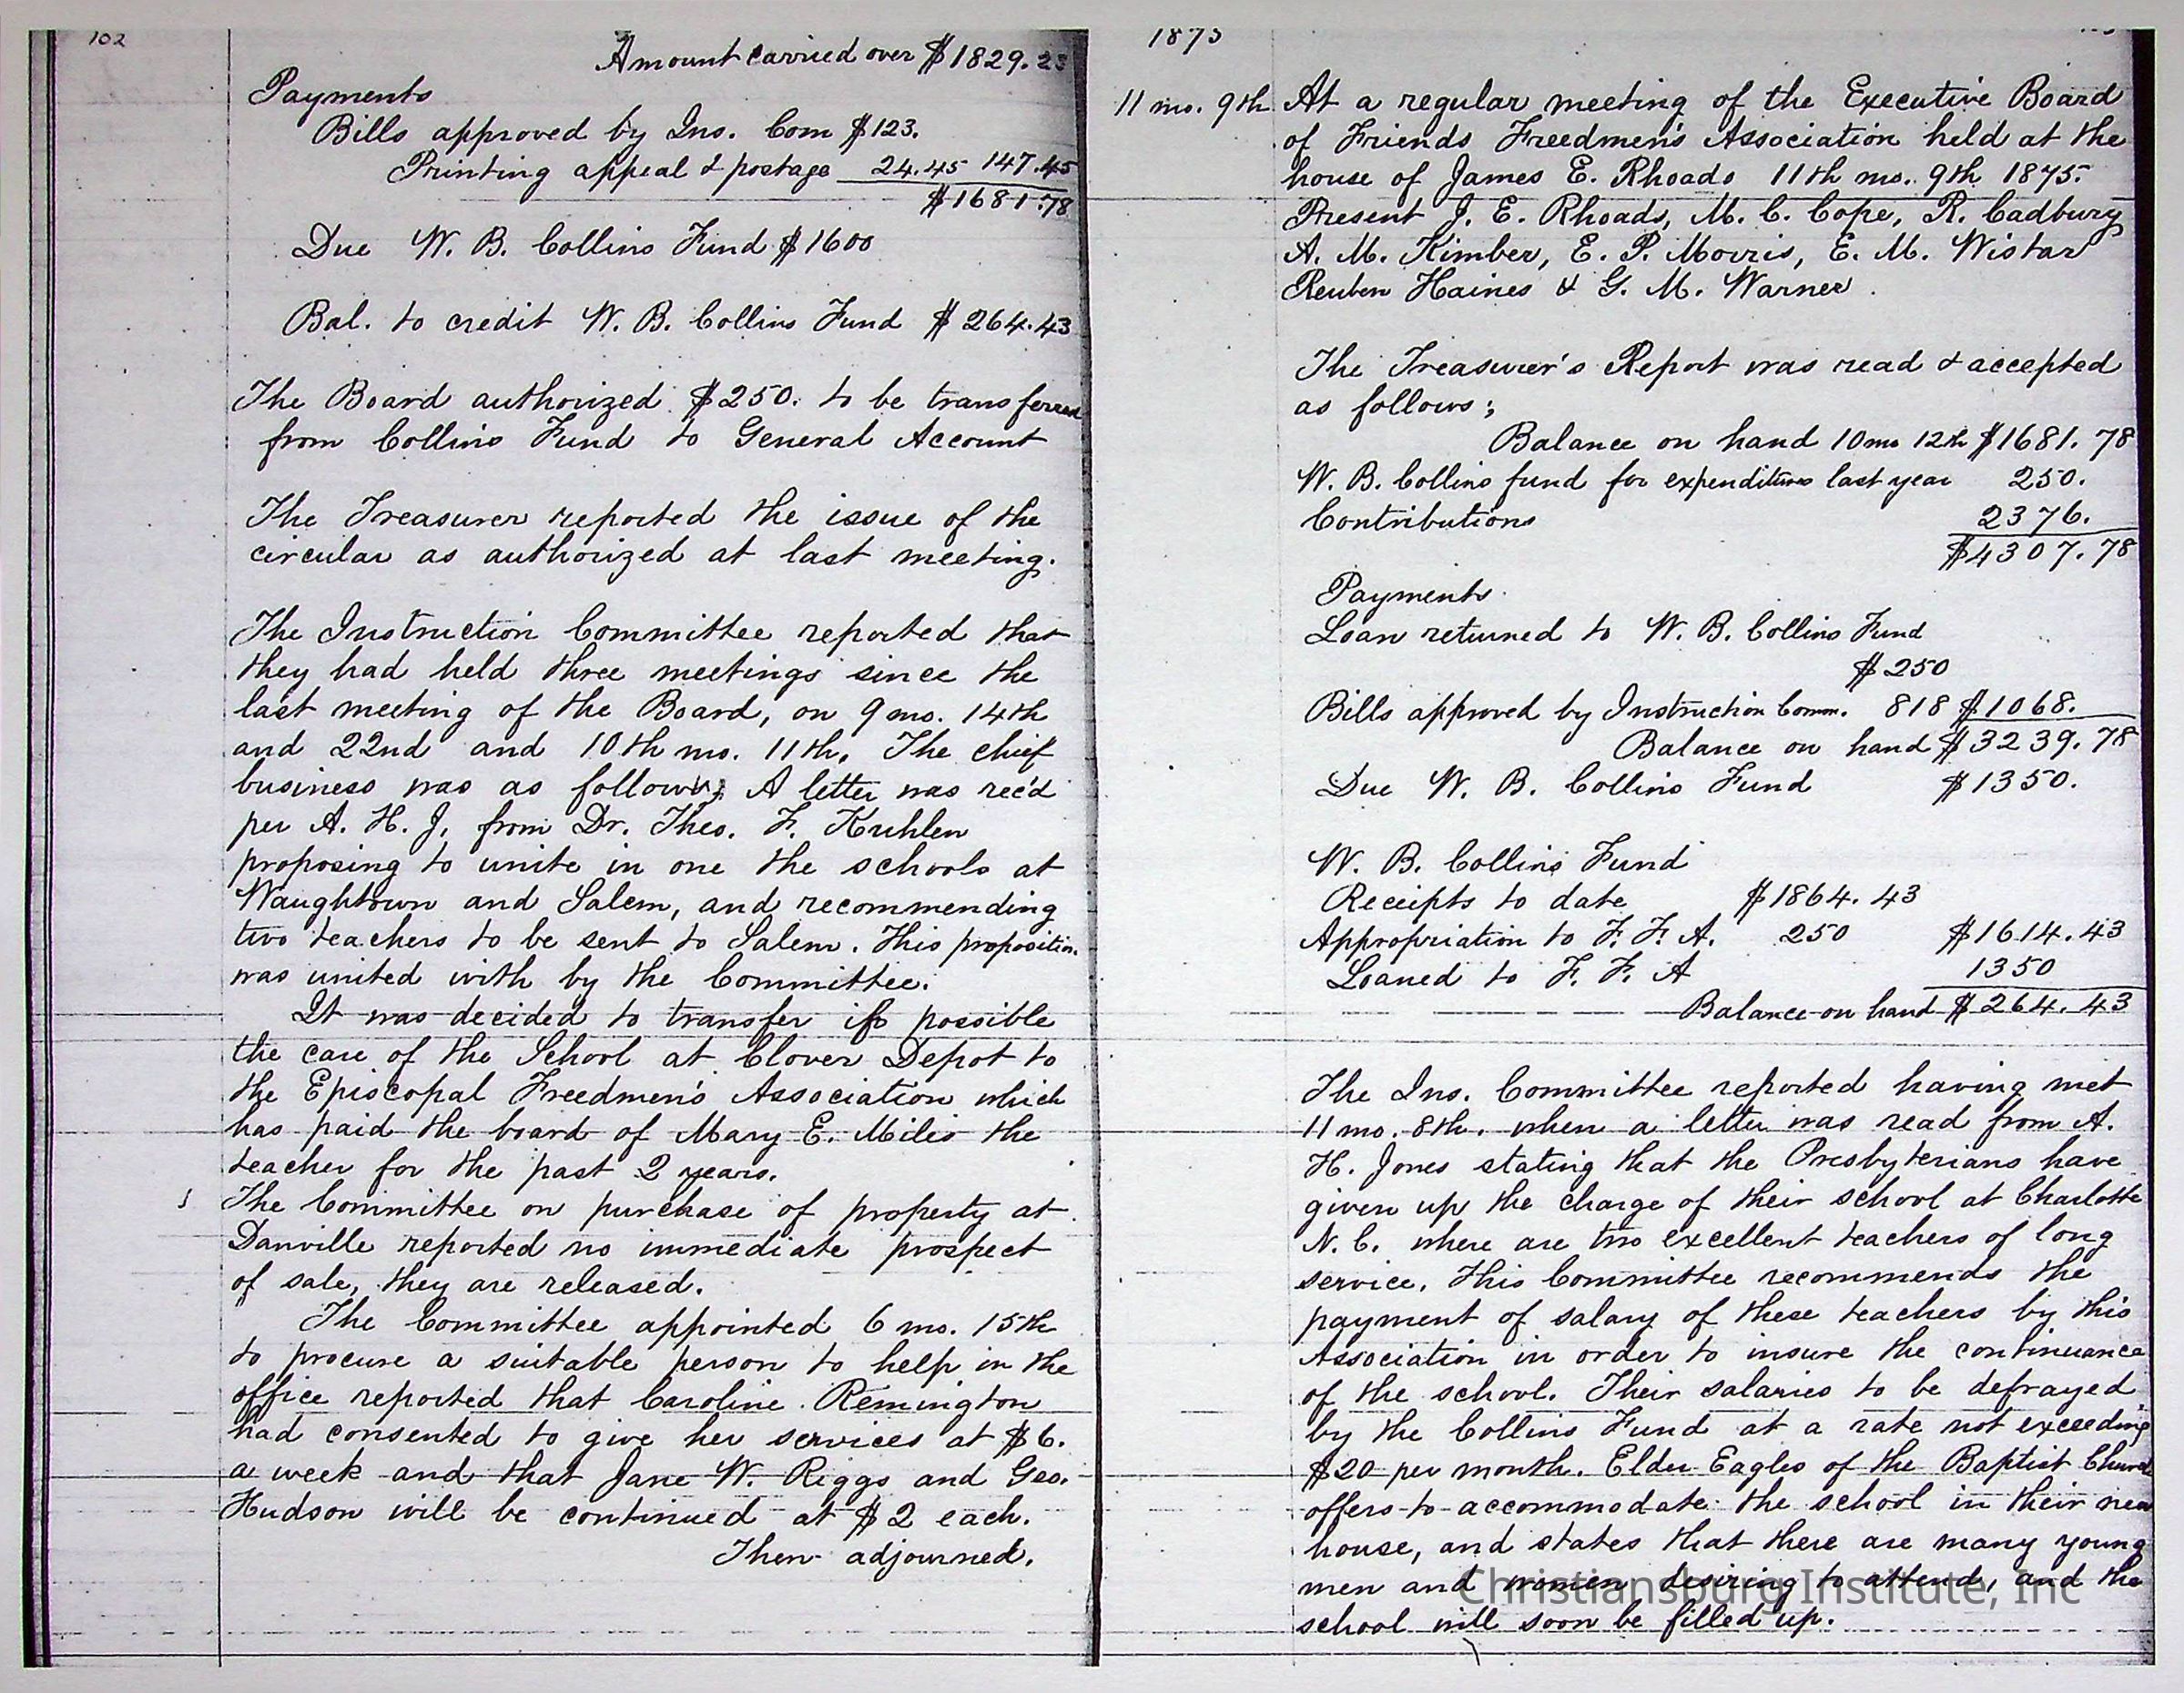 102
Amount carried over $1829.23
Payments
Bills approved by Ins. Com $123.
Printing appeal & postage 24.45 147.45
$1681.78
Due W. B. Collins Fund $1600
Bal. to credit W. B. Collins Fund $264.43
The Board authorized $250. to be transferred
from Collins Fund to General Account
The Treasurer reported the issue of the
circular as authorized at last meeting.
The Instruction Committee reported that
they had held three meetings since the
last meeting of the Board, on 9 mo. 14th
and 22nd and 10th mo. 11th. The chief
business was as follows; A letter was rec'd
per A. H. J. from Dr. Theo. F. Kuhlen
proposing to unite in one the schools at
Waughtown and Salem, and recommending
two teachers to be sent to Salem. This proposition
was united with by the Committee.
It was decided to transfer if possible
the care of the School at Clover Depot to
the Episcopal Freedmen's Association which
has paid the board of Mary E. Miles the
teacher for the past 2 years.
The Committee on purchase of property at
Danville reported no immediate prospect
of sale, they are released.
The Committee appointed 6 mo. 15th
to procure a suitable person to help in the
office reported that Caroline Remington
had consented to give her services at $6.
a week and that Jane W. Riggs and Geo.
Hudson will be continued at $2 each.
Then adjourned.
1875
11 mo. 9th At a regular meeting of the Executive Board
of Friends Freedmen's Association held at the
house of James E. Rhoads 11th mo. 9th 1875.
Present J. E. Rhoads, M. C. Cope, R. Cadbury
A. M. Kimber, E. P. Morris, E. M. Wistar
Reuben Haines & G. M. Warner.
The Treasurer's Report was read & accepted
as follows;
Balance on hand 10 mo 12th $1681.78
W. B. Collins fund for expenditures last year 250.
Contributions 2376.
$4307.78
Payments
Loan returned to W. B. Collins Fund
$250
Bills approved by Instruction Comm. 818 $1068.
Balance on hand $3239.78
Due W. B. Collins Fund $1350.
W. B. Collins Fund
Receipts to date $1864.43
Appropriation to F. F. A. 250 $1614.43
Loaned to F. F. A 1350
Balance on hand $264.43
The Ins. Committee reported having met
11 mo. 8th. when a letter was read from A.
H. Jones stating that the Presbyterians have
given up the charge of their school at Charlotte
N. C. where are two excellent teachers of long
service. This Committee recommends the
payment of salary of these teachers by this
Association in order to insure the continuance
of the school. Their salaries to be defrayed
by the Collins Fund at a rate not exceeding
$20 per month. Elder Eagles of the Baptist Church
offers to accommodate the school in their new
house, and states that there are many young
men and women desiring to attend, and the
school will soon be filled up.
Christiansburg Institute, Inc